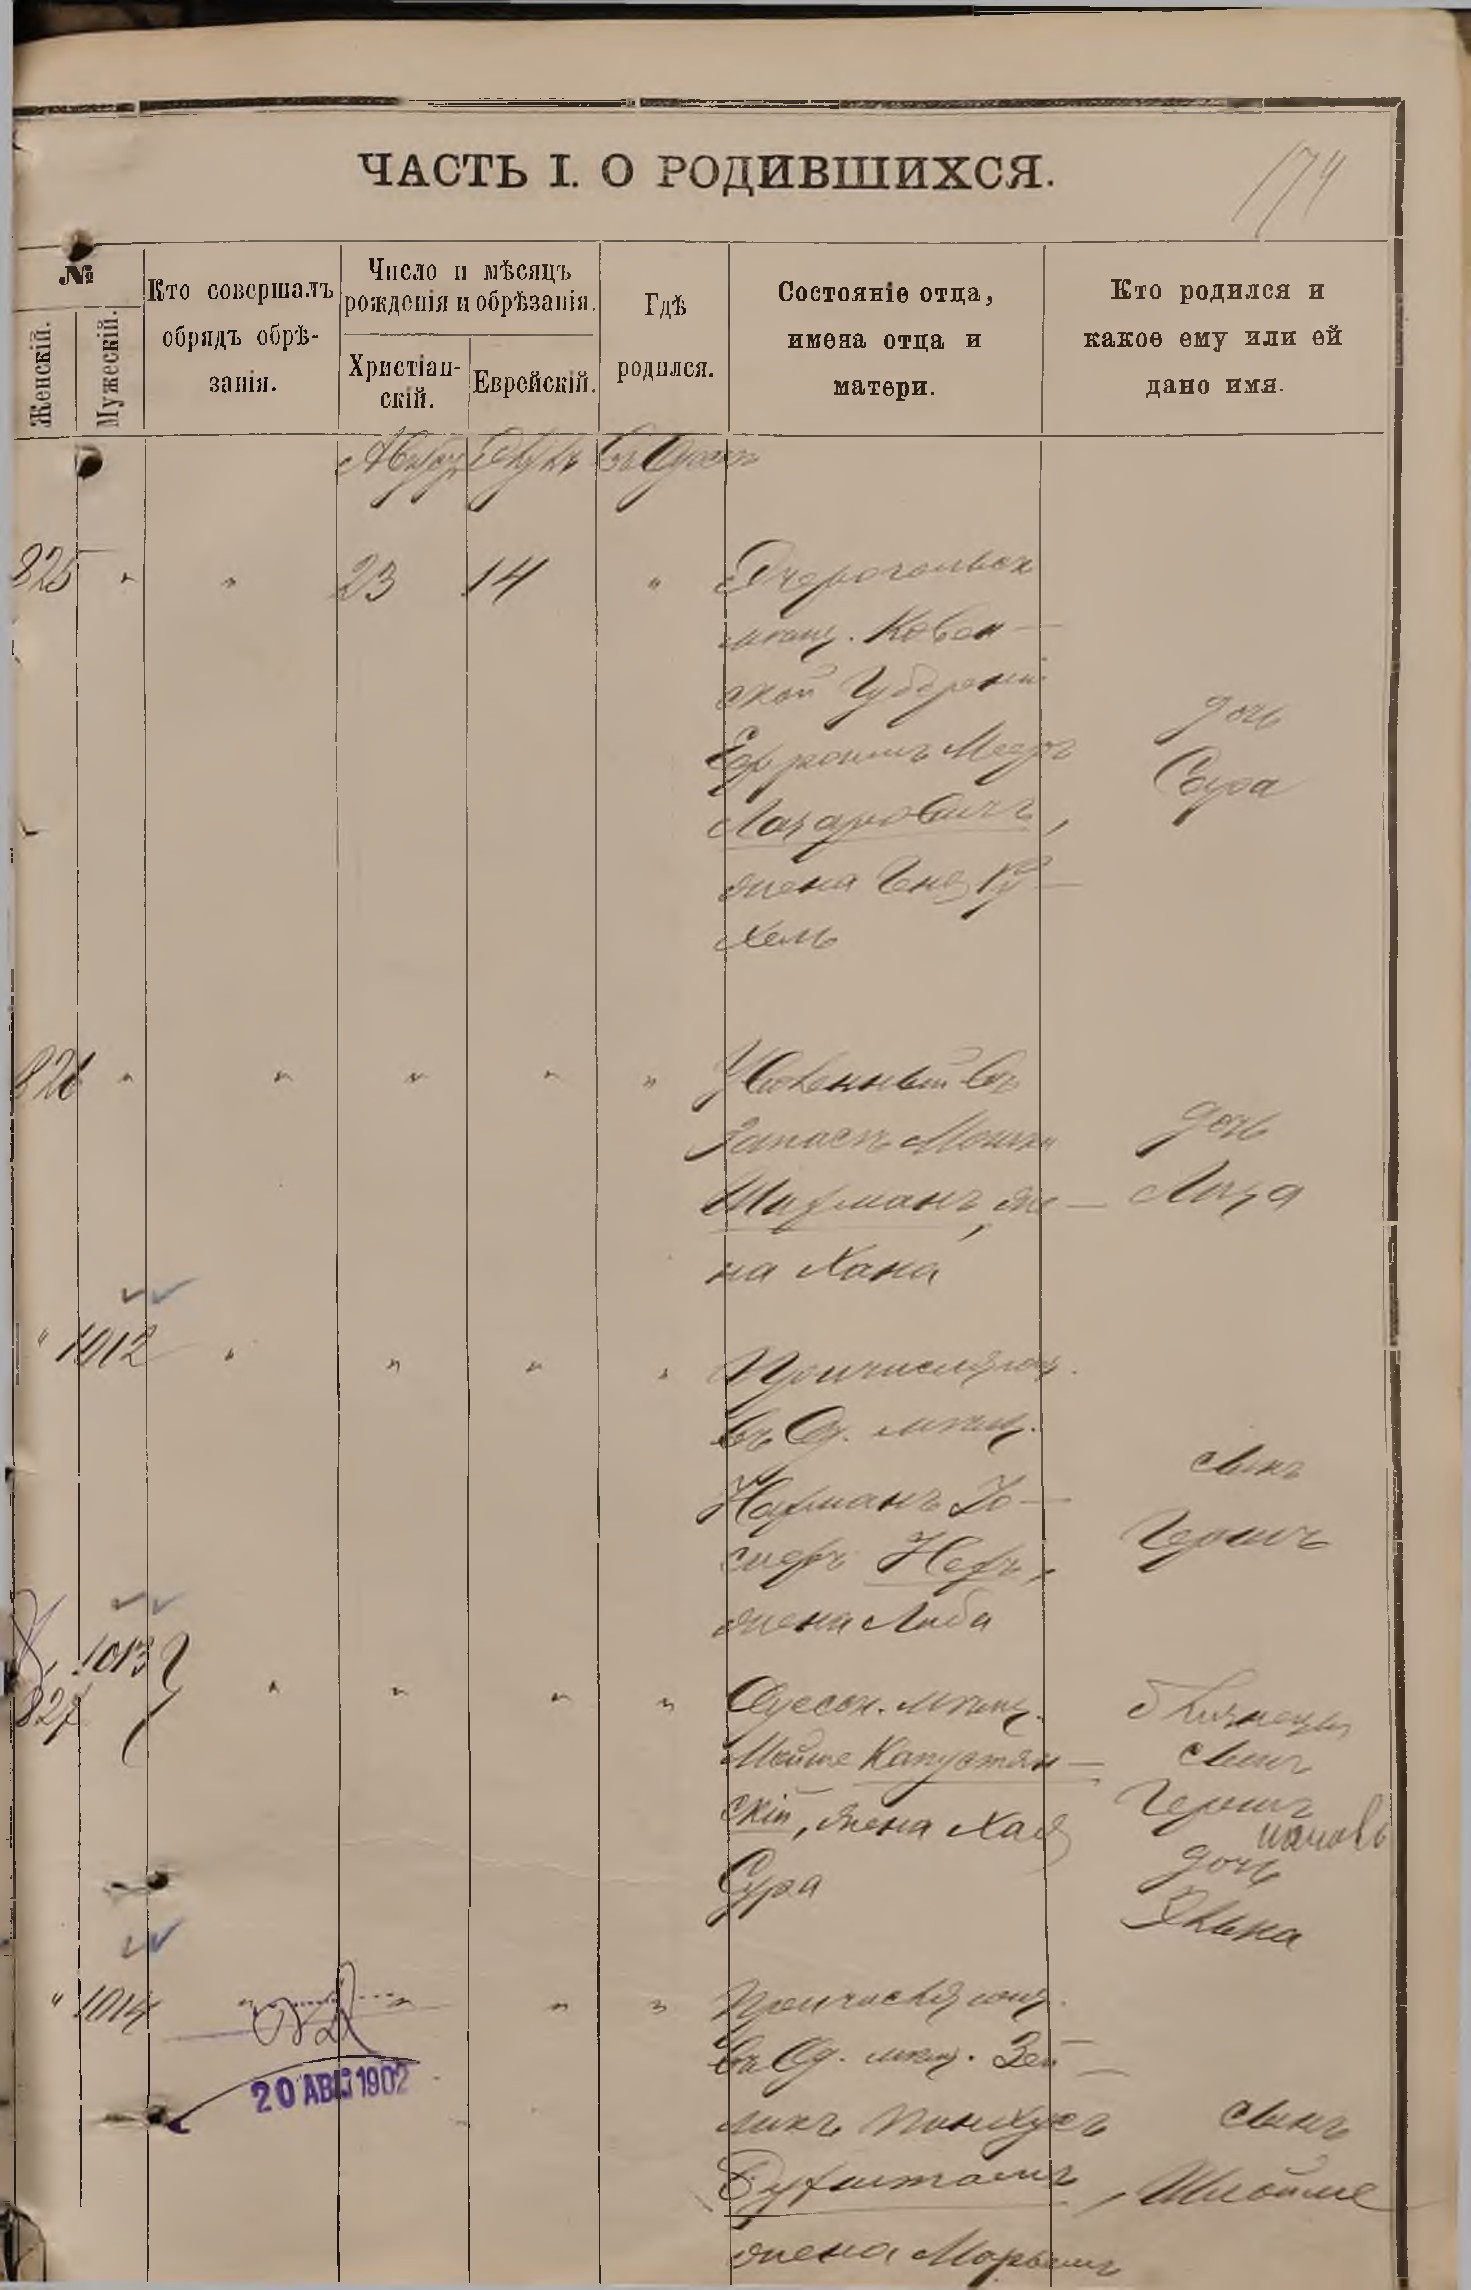 ЧАСТЬ I. О РОДИВШИХСЯ.
174
№
Женскій.
Мужескій.
Кто совершалъ
обрядъ обрѣ-
занія.
Число и мѣсяцъ
рожденія и обрѣзанія.
Христіан-
скій.
Еврейскій.
Гдѣ
родился.
Состояніе отца,
имена отца и
матери.
Кто родился и
какое ему или ей
дано имя.
Августъ Въ Одессѣ
825 " " 23 14 "
мѣщ. Ковен-
ской Губерніи
Ефроимъ Мееръ
Лазаровичъ,
жена Геня Ру-
хель
дочь
Сура
826 " " " " "
Уволенный въ
запасъ Мошко
Шифманъ, же-
на Хана
дочь
Лиза
" 1012 " " " "
Причисляющ.
въ Од. мѣщ.
Нафманъ Іо-
сифъ Нефъ,
жена Либа
сынъ
Гершъ
1013
827 " " " "
Одесск. мѣщ.
Мойше Капустян-
скій, жена Хая
Сура
близнецы
сынъ
Гершъ
дочь
" 1014 " " " "
Причисляющ.
въ Од. мѣщ. Зей-
ликъ Пинхусъ
жена Марьемъ
сынъ
Шлойме
20 АВГ 1902